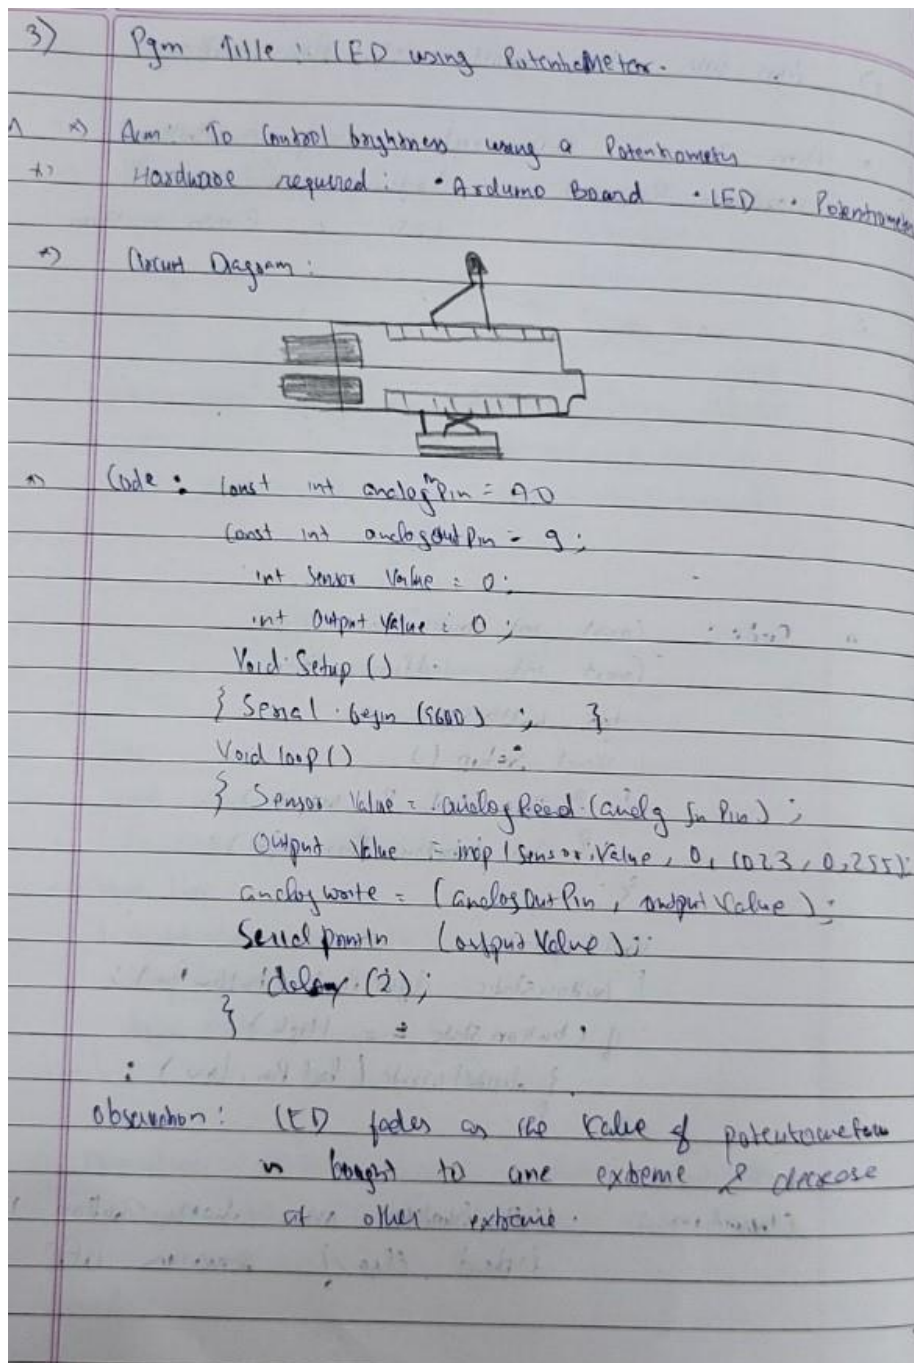 3) Pgm Title : LED using PotentioMeter.
*) Aim: To Control brightness using a Potentiometer
*) Hardware required : • Arduino Board • LED • Potentiometer
*) Circuit Diagram :
*) Code : Const int analoginPin = A0
Const int analogOutPin = 9;
int Sensor Value = 0;
int Output Value = 0;
Void Setup ()
{ Serial . begin (9600) ; }
Void loop ()
{ Sensor Value = analogRead (analg In Pin) ;
Output Value = map (Sensor Value , 0, 1023 , 0, 255);
analogwrite = (analogOutPin , output Value ) ;
Serial println (output Value ) ;
delay (2);
}
Observation : LED fades as the Value of potentiometer
is bought to one extreme & decrease
at other extreme .